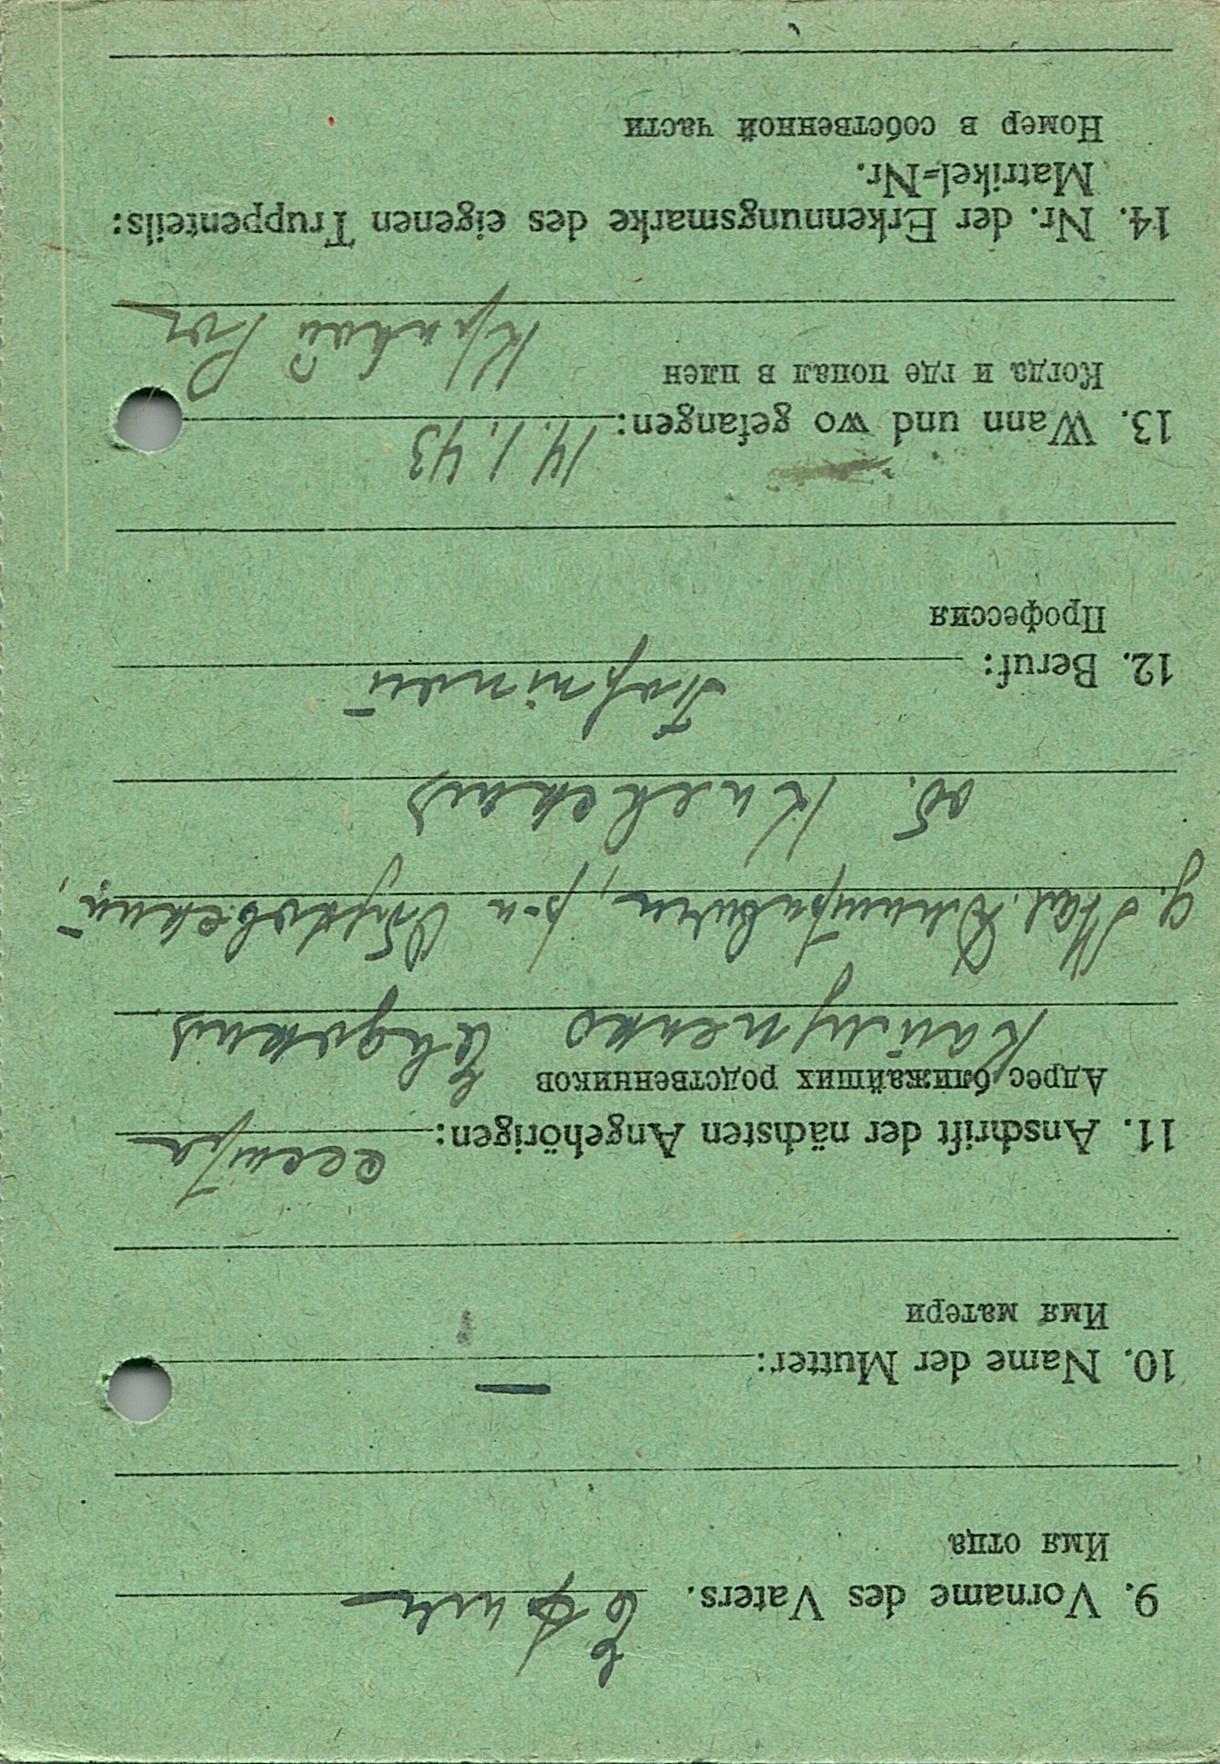 9. Vorname des Vaters. Ефим
Имя отца
10. Name der Mutter: —
Имя матери
11. Anschrift der nächsten Angehörigen: сестра
Адрес ближайших родственников
Евдокия
д. Мал. р-н Обуховский,
об. Киевская
12. Beruf:
Профессия
13. Wann und wo gefangen: 14.1.43
Когда и где попал в плен
Кривой Рог
14. Nr. der Erkennungsmarke des eigenen Truppenteils:
Matrikel=Nr.
Номер в собственной части